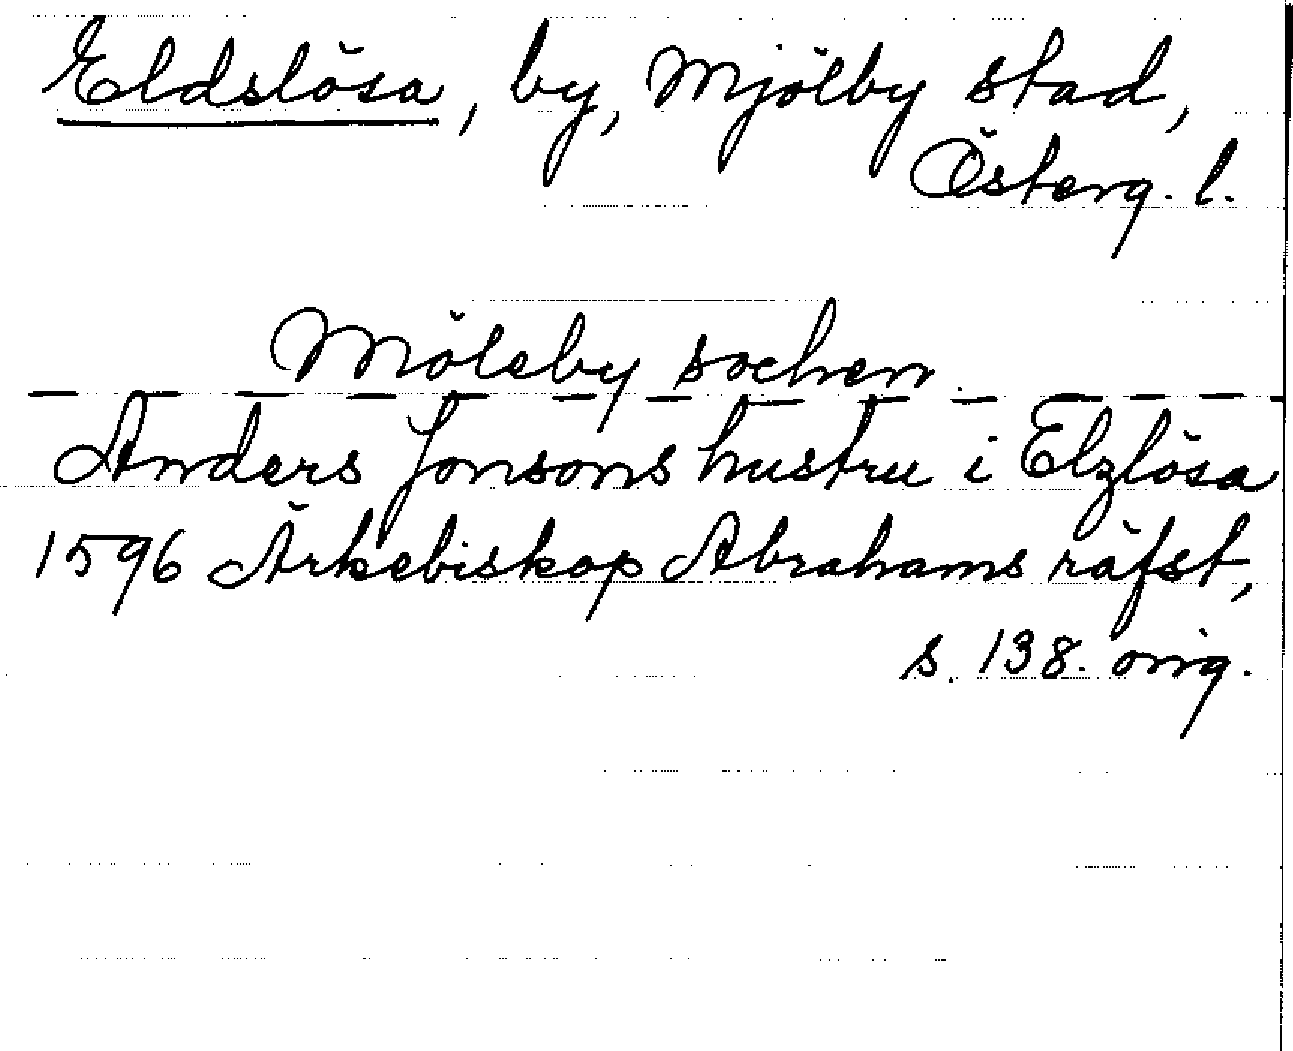 Eldslösa, by, Mjölby stad,
Österg. l.
Möleby sochen.
Anders Jonsons hustru i Elzlösa
1596 Ärkebiskop Abrahams räfst,
s. 138. orig.